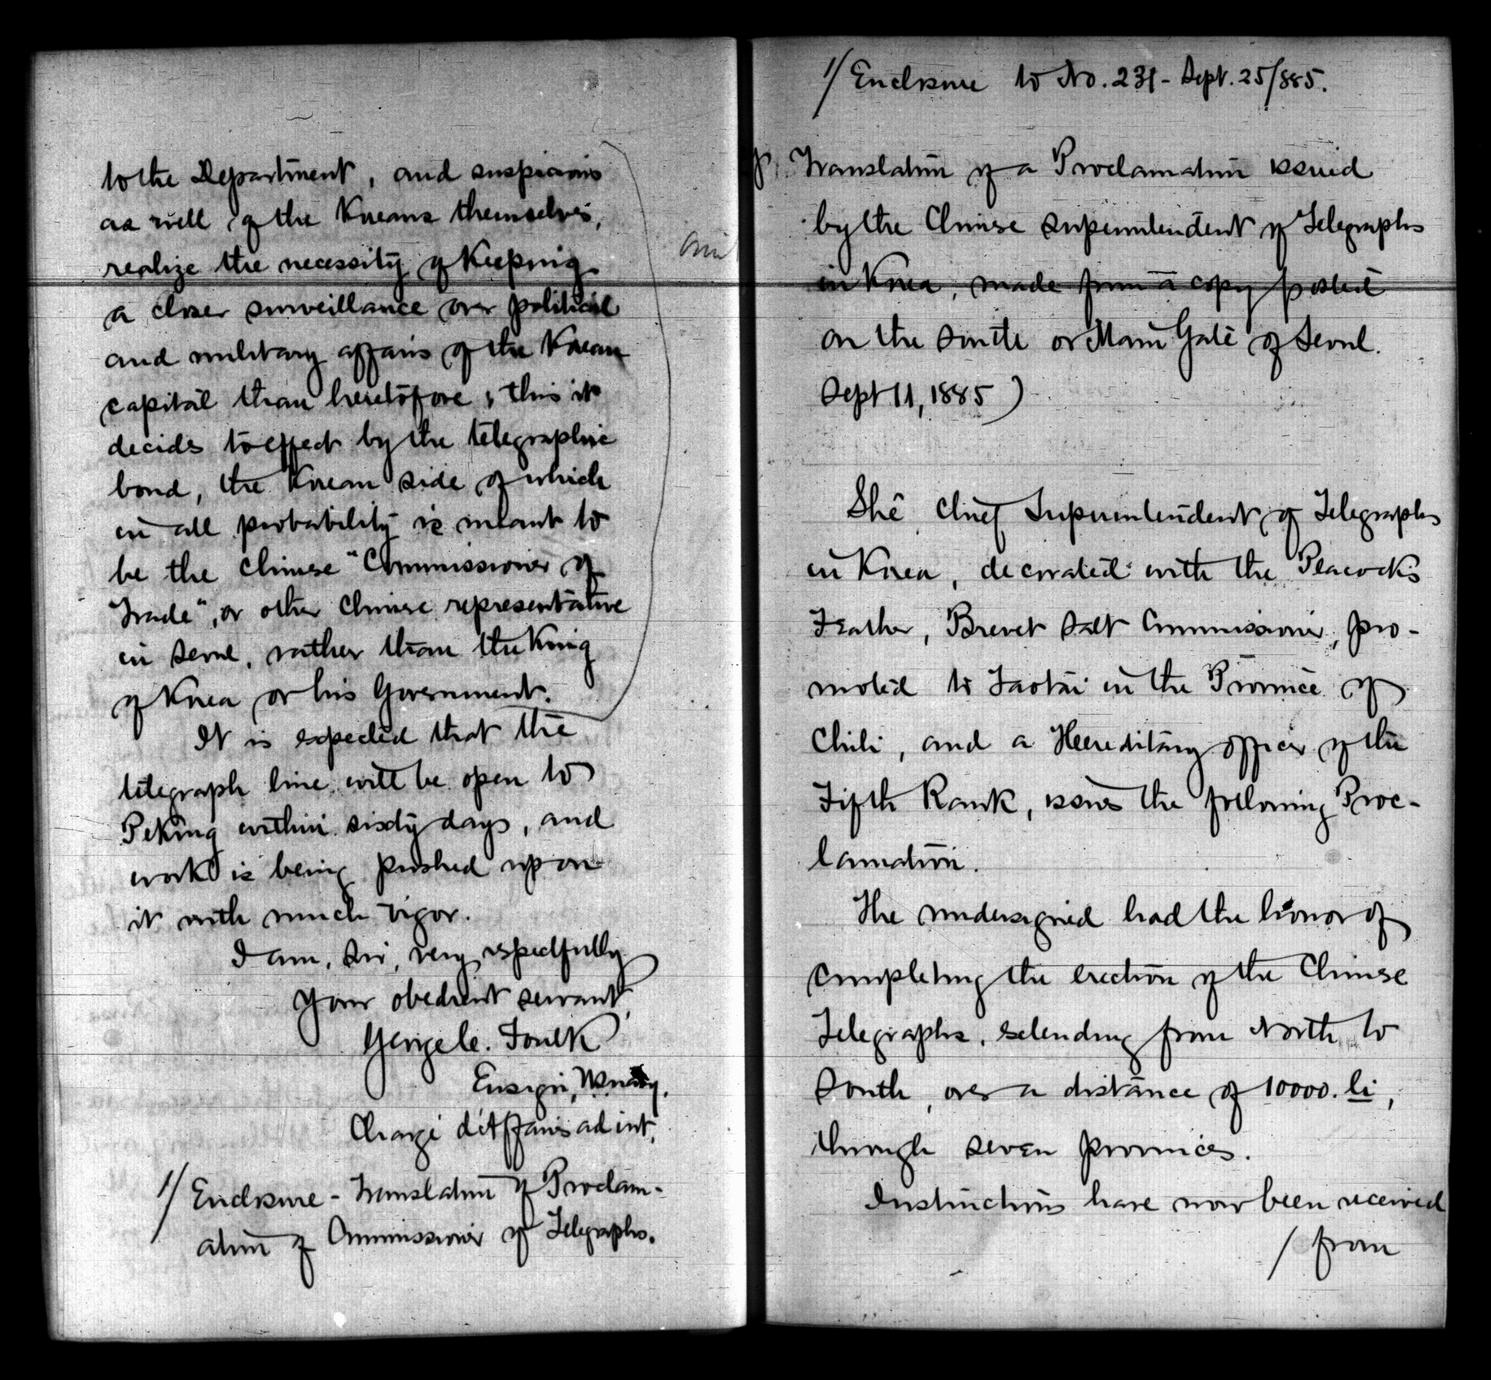 to the Department, and suspicions
as well of the Koreans themselves,
realize the necessity of keeping
a closer surveillance over political
and military affairs of the Korean
capital than heretofore; this it
decides to effect by the telegraphic
bond, the Korean side of which
in all probability is meant to
be the Chinese "Commissioner of
Trade", or other Chinese representative
in Seoul, rather than the King
of Korea or his Government.
It is expected that the
telegraph line will be open to
Peking within sixty days, and
work is being pushed upon
it with much vigor.
I am, Sir, very respectfully
Your obedient servant,
George C. Foulk
Ensign, U.S. Navy.
Chargé d'Affaires ad int.
1/ Enclosure - Translation of Proclam-
ation of Commissioner of Telegraphs.
1/ Enclosure to No. 231 - Sept. 25/885.
Translation of a Proclamation issued
by the Chinese Superintendent of Telegraphs
in Korea, made from a copy posted
on the South or Main Gate of Seoul.
Sept 11, 1885)
The Chief Superintendent of Telegraphs
in Korea, decorated with the Peacock's
Feather, Brevet Salt Commissioner, pro-
moted to Taotai in the Province of
Chili, and a Hereditary officer of the
Fifth Rank, issues the following Proc-
lamation.
The undersigned had the honor of
completing the erection of the Chinese
Telegraphs, extending from North to
South, over a distance of 10000. li,
through seven provinces.
Instructions have now been received
/ from